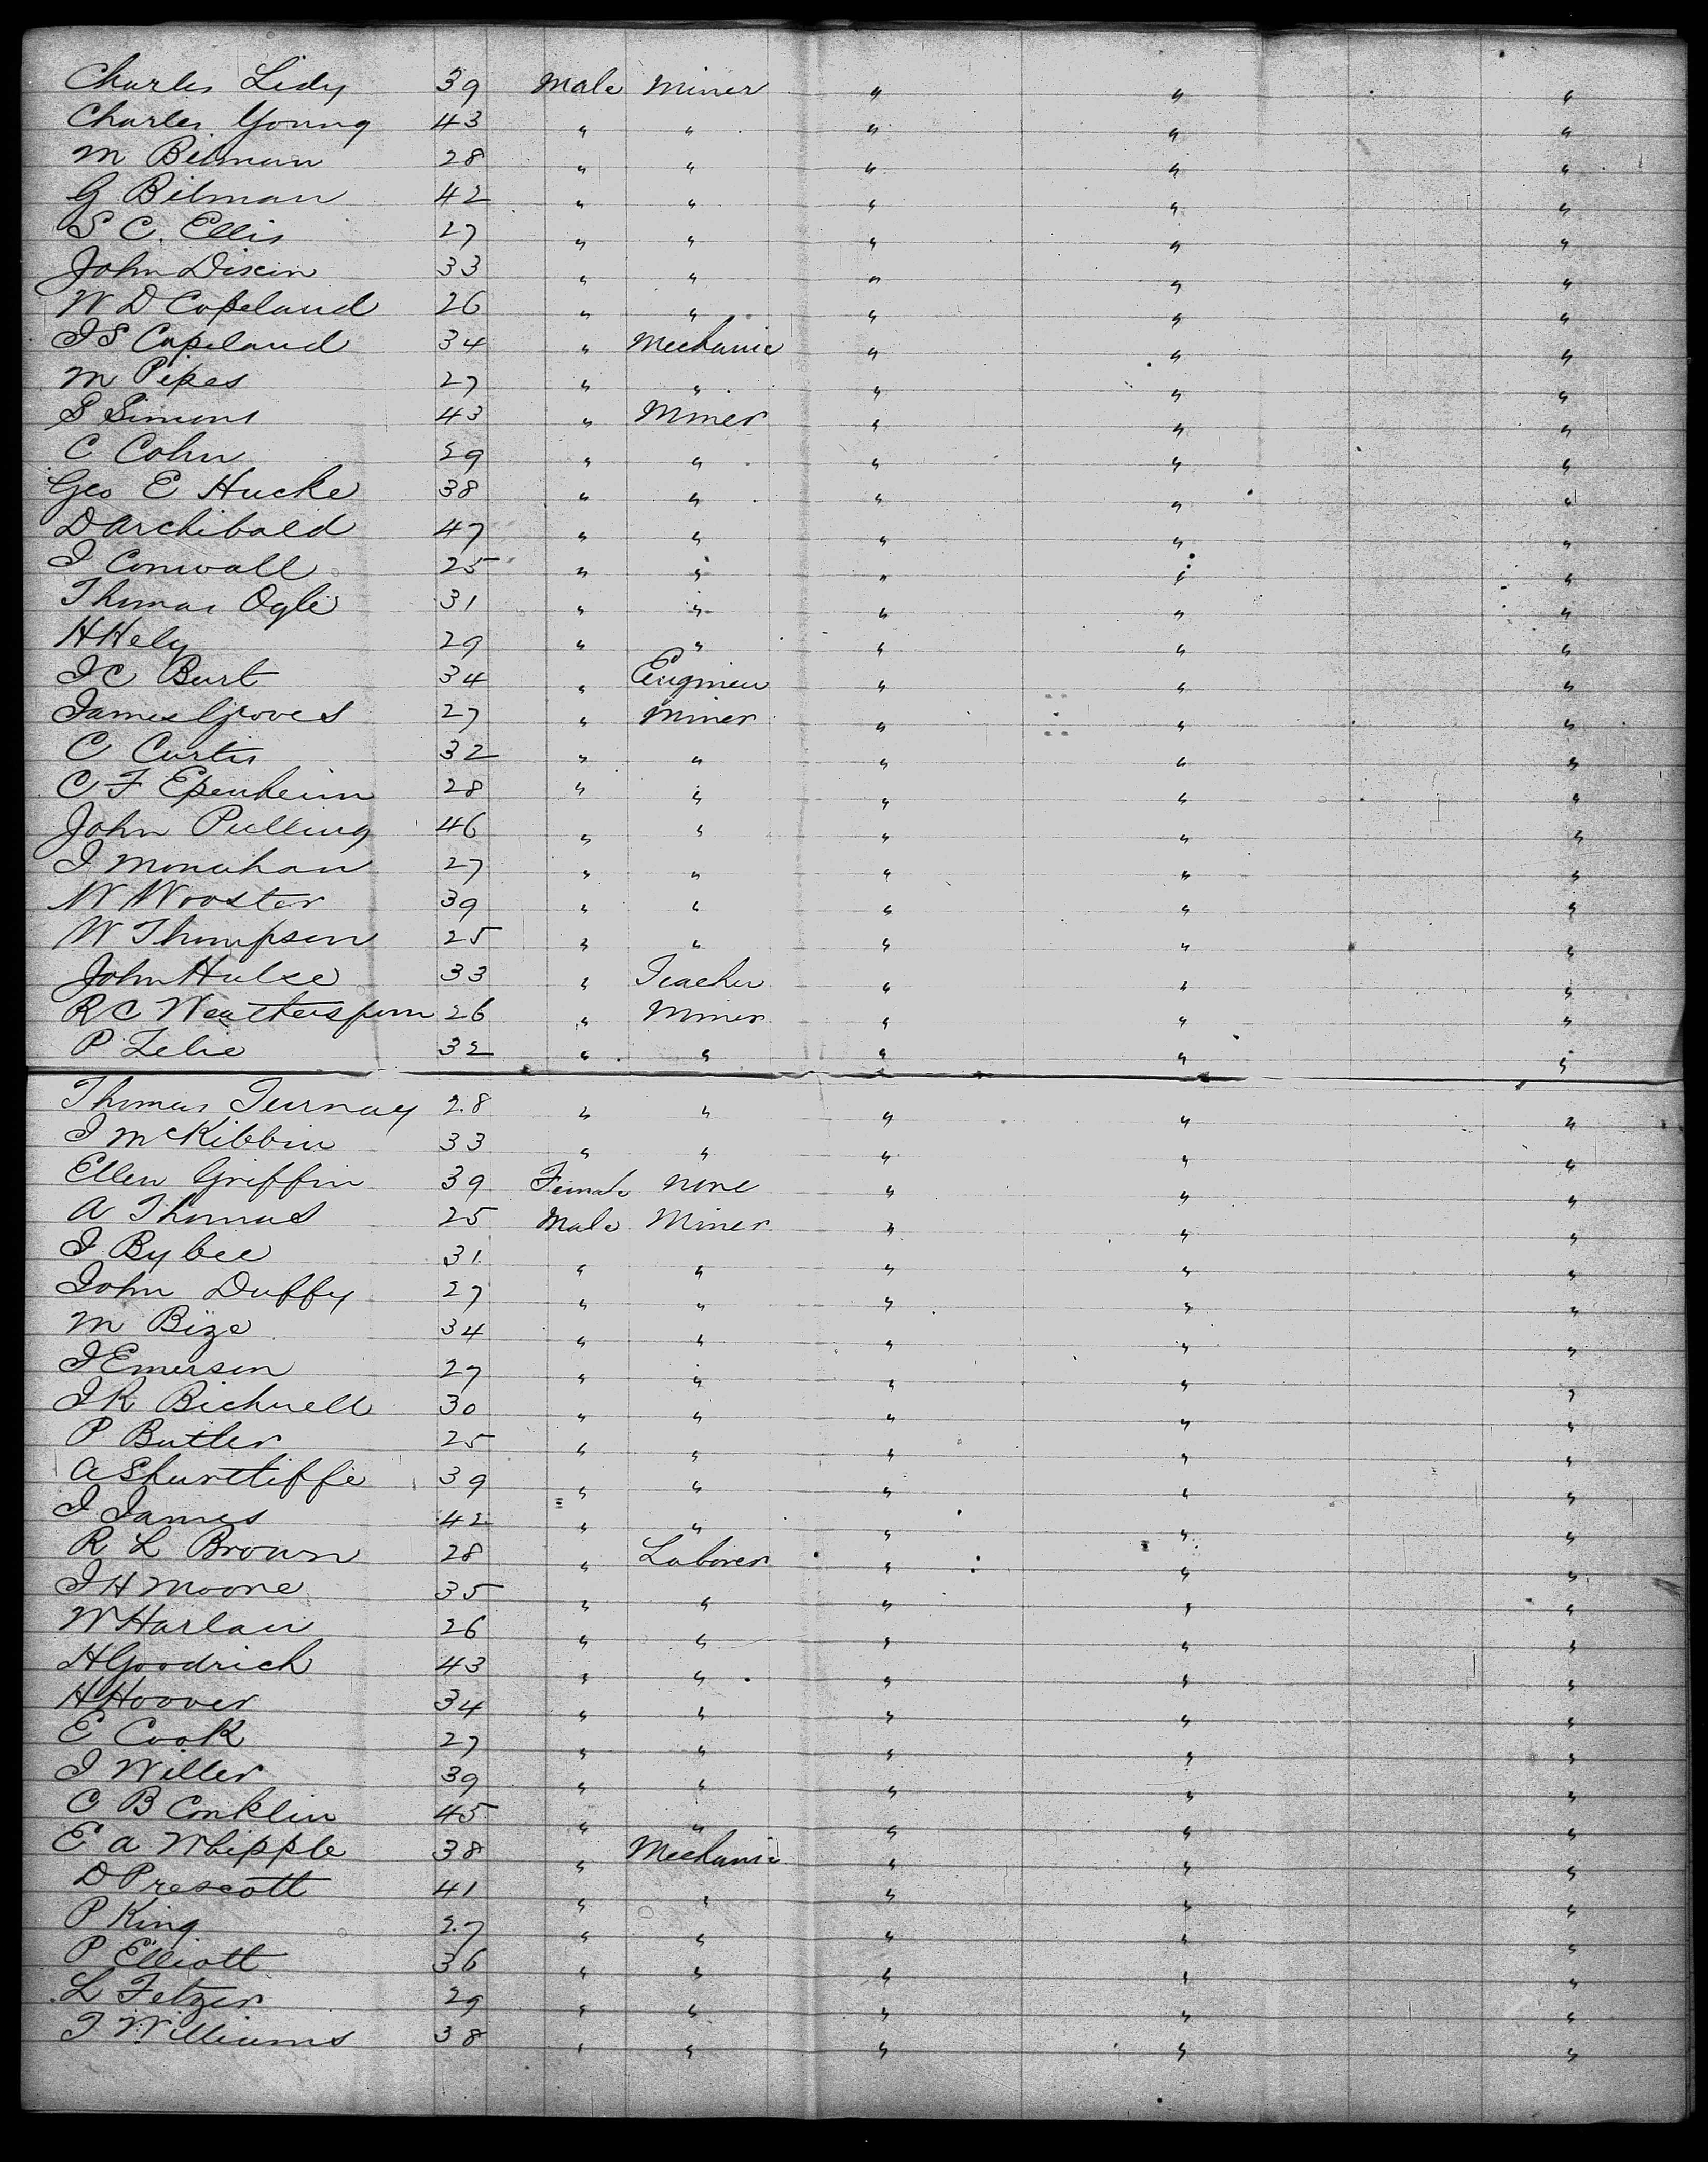 Charles Lidy 39 Male Miner " " "
Charles Young 43 " " " " "
M Beaman 28 " " " " "
G Bilman 42 " " " " "
S C. Ellis 27 " " " " "
John Dixin 33 " " " " "
W D Copeland 26 " " " " "
J S Copeland 34 " Mechanic " " "
M Pipes 27 " " " " "
S Simons 43 " Miner " " "
C Cohn 29 " " " " "
Geo E Hucke 38 " " " " "
D Archibald 47 " " " " "
J Conwall 25 " " " " "
Thomas Ogle 31 " " " " "
H Hely 29 " " " " "
J C Burt 34 " Engineer " " "
James Groves 27 " Miner " " "
C Curtis 32 " " " " "
C F Epenheim 28 " " " " "
John Pulling 46 " " " " "
J Monahan 27 " " " " "
W Wooster 39 " " " " "
W Thompson 25 " " " " "
John Hulse 33 " Teacher " " "
R C Weatherspoon 26 " Miner " " "
P Lelie 32 " " " " "
Thomas Turnay 28 " " " " "
J McKibbin 33 " " " " "
Ellen Griffin 39 Female None " " "
A Thomas 25 Male Miner " " "
J Bybee 31 " " " " "
John Duffy 27 " " " " "
M Bize 34 " " " " "
J Emerson 27 " " " " "
J R Bicknell 30 " " " " "
P Butler 25 " " " " "
A Shurtliffe 39 " " " " "
J James 42 " " " " "
R L Brown 28 " Laborer " " "
J H Moore 35 " " " " "
W Harlan 26 " " " " "
H Goodrich 43 " " " " "
H Hoover 34 " " " " "
E Cook 27 " " " " "
J Willer 39 " " " " "
C B Conklin 45 " " " " "
E A Whipple 38 " Mechanic " " "
D Prescott 41 " " " " "
P King 27 " " " " "
P Elliott 36 " " " " "
L Fetzer 29 " " " " "
J Williams 38 " " " " "